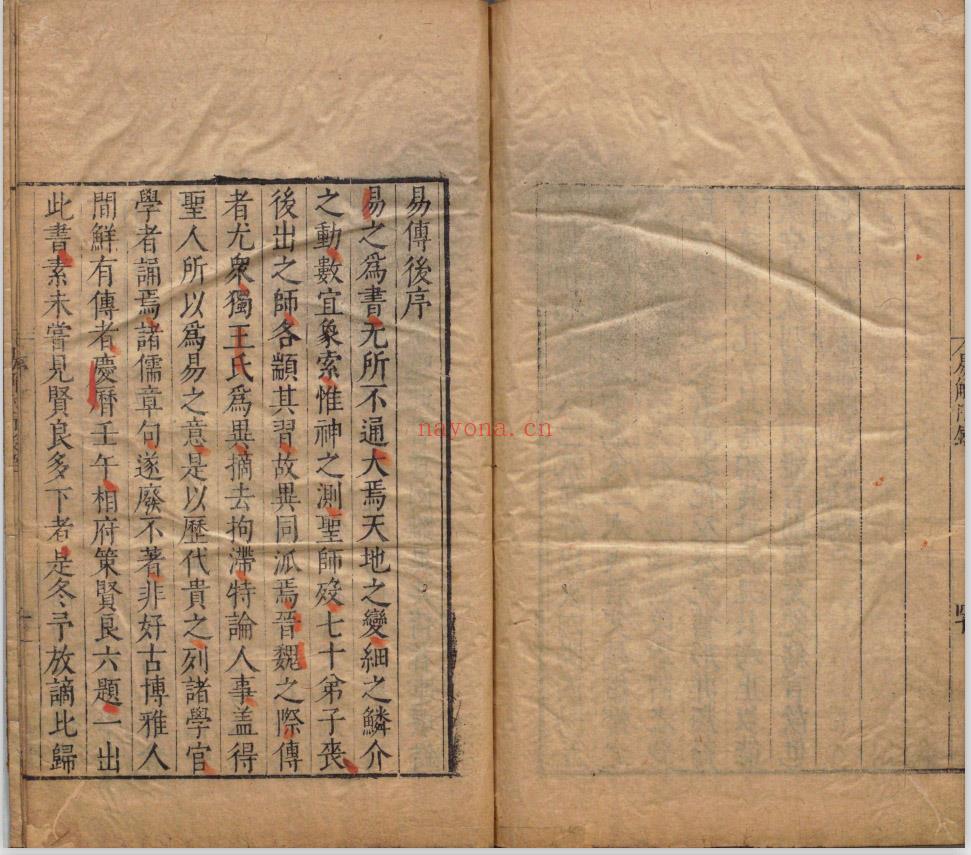 易傳後序
易之爲書无所不通大焉天地之變細之鱗介
之動數宜象索惟神之測聖師歿七十弟子喪
後出之師各顓其習故異同派焉晉魏之際傳
者尤衆獨王氏爲異摘去拘滯特論人事盖得
聖人所以爲易之意是以歷代貴之列諸學官
學者誦焉諸儒章句遂廢不著非好古博雅人
間鮮有傳者慶曆壬午相府策賢良六題一出
此書素未嘗見賢良多下者是冬予放謫北歸
nayona.cn